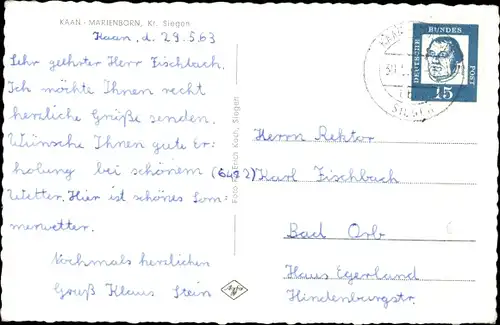 KAAN - MARIENBORN, Kr. Siegen
Kaan, d. 29.5.63
Sehr geehrter Herr Fischbach.
Ich möchte Ihnen recht
herzliche Grüße senden.
Wünsche Ihnen gute Er-
holung bei schönem
Wetter. Hier ist schönes Som-
merwetter.
Nochmals herzlichen
Gruß Klaus Stein
Foto Erich Koch, Siegen
DEUTSCHE BUNDES POST
15
KAAN
SIEGEN
Herrn Rektor
(6482) Karl Fischbach
Bad Orb
Haus Egerland
Hindenburgstr.